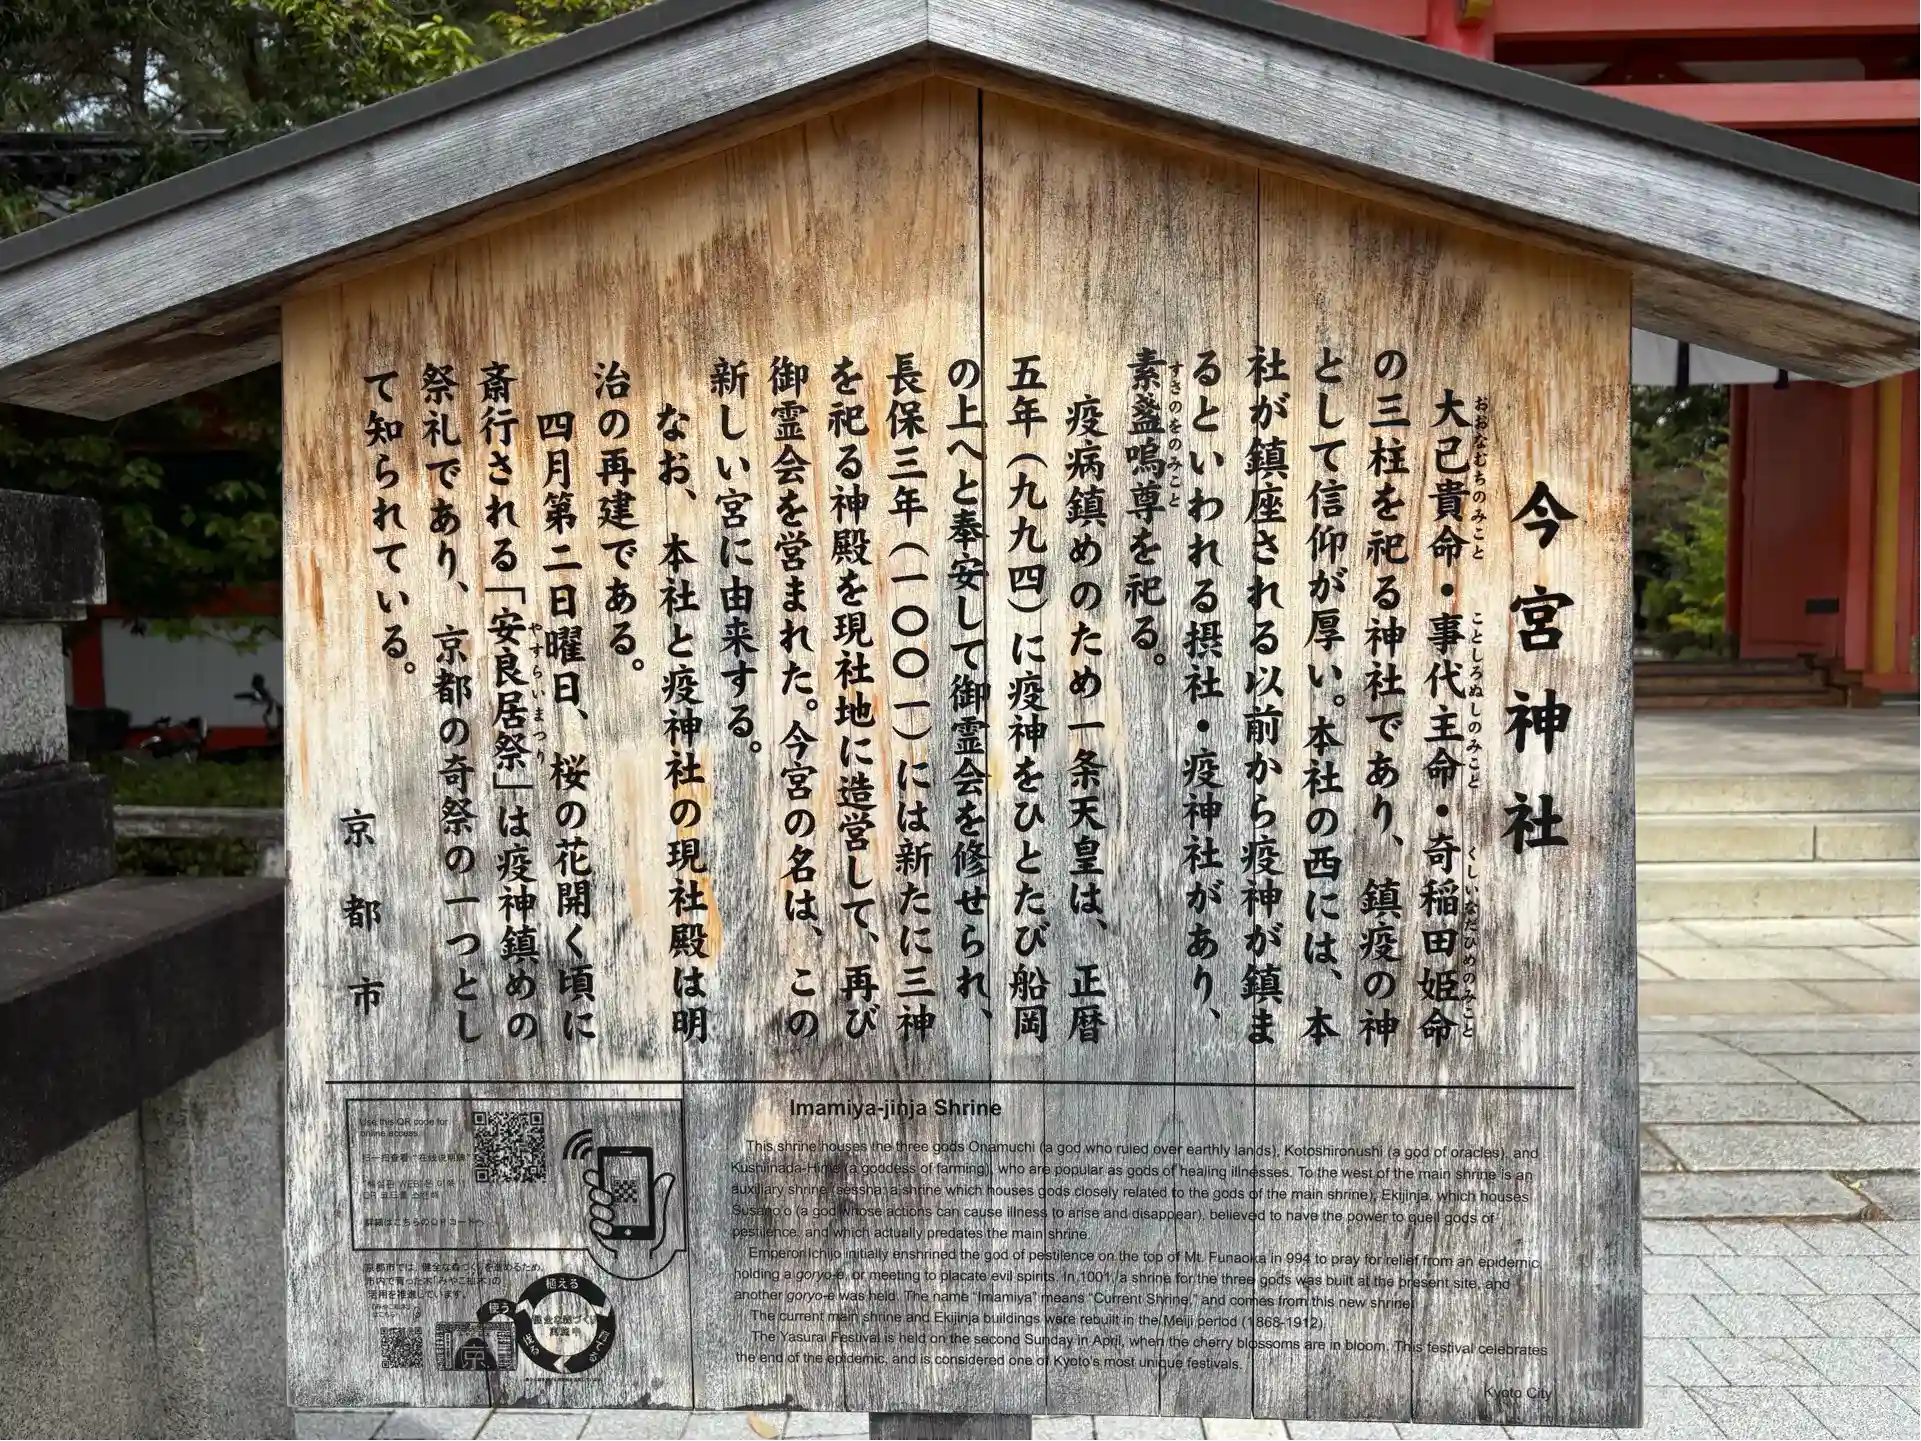 今宮神社
大己貴命・事代主命・奇稲田姫命
おおなむちのみこと ことしろぬしのみこと くしいなだひめのみこと
の三柱を祀る神社であり、鎮疫の神
として信仰が厚い。本社の西には、本
社が鎮座される以前から疫神が鎮ま
るといわれる摂社・疫神社があり、
素盞嗚尊を祀る。
すさのをのみこと
疫病鎮めのため一条天皇は、正暦
五年（九九四）に疫神をひとたび船岡
の上へと奉安して御霊会を修せられ、
長保三年（一〇〇一）には新たに三神
を祀る神殿を現社地に造営して、再び
御霊会を営まれた。今宮の名は、この
新しい宮に由来する。
なお、本社と疫神社の現社殿は明
治の再建である。
四月第二日曜日、桜の花開く頃に
斎行される「安良居祭」は疫神鎮めの
やすらいまつり
祭礼であり、京都の奇祭の一つとし
て知られている。
京都市
Use this QR code for
online access.
扫一扫查看“在线说明牌”
詳細はこちらのQRコードへ
京都市では、健全な森づくりを進めるため、
市内で育った木「みやこ杣木」の
活用を推進しています。
植える
使う
京
Imamiya-jinja Shrine
This shrine houses the three gods Onamuchi (a god who ruled over earthly lands), Kotoshironushi (a god of oracles), and
Kushiinada-Hime (a goddess of farming), who are popular as gods of healing illnesses. To the west of the main shrine is an
auxiliary shrine (sessha: a shrine which houses gods closely related to the gods of the main shrine), Ekijinja, which houses
Susano'o (a god whose actions can cause illness to arise and disappear), believed to have the power to quell gods of
pestilence, and which actually predates the main shrine.
Emperor Ichijo initially enshrined the god of pestilence on the top of Mt. Funaoka in 994 to pray for relief from an epidemic,
holding a goryo-e, or meeting to placate evil spirits. In 1001, a shrine for the three gods was built at the present site, and
another goryo-e was held. The name "Imamiya" means "Current Shrine," and comes from this new shrine.
The current main shrine and Ekijinja buildings were rebuilt in the Meiji period (1868-1912).
The Yasurai Festival is held on the second Sunday in April, when the cherry blossoms are in bloom. This festival celebrates
the end of the epidemic, and is considered one of Kyoto's most unique festivals.
Kyoto City